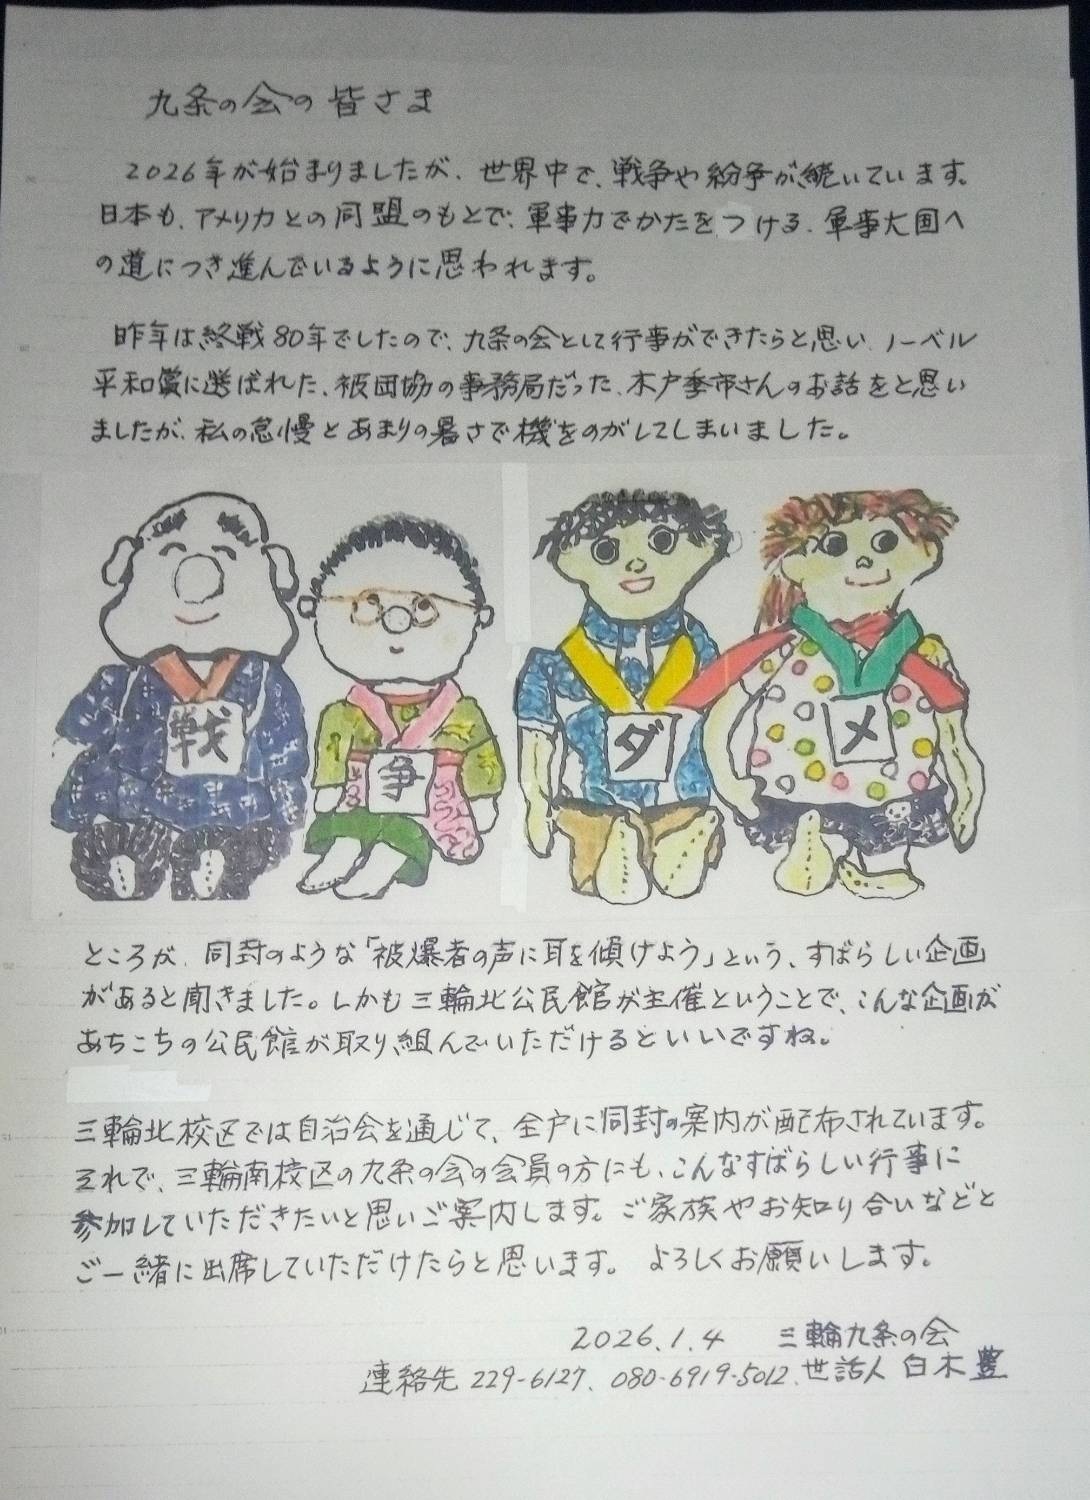 九条の会の皆さま
2026年が始まりましたが、世界中で、戦争や紛争が続いています。
日本も、アメリカとの同盟のもとで、軍事力でかたをつける、軍事大国へ
の道につき進んでいるように思われます。
昨年は終戦80年でしたので、九条の会として行事ができたらと思い、ノーベル
平和賞に選ばれた、被団協の事務局だった、木戸季市さんのお話をと思い
ましたが、私の怠慢とあまりの暑さで機をのがしてしまいました。
戦
争
ダ
メ
ところが、同封のような「被爆者の声に耳を傾けよう」という、すばらしい企画
があると聞きました。しかも三輪北公民館が主催ということで、こんな企画が
あちこちの公民館が取り組んでいただけるといいですね。
三輪北校区では自治会を通じて、全戸に同封の案内が配布されています。
それで、三輪南校区の九条の会の会員の方にも、こんなすばらしい行事に
参加していただきたいと思いご案内します。ご家族やお知り合いなどと
ご一緒に出席していただけたらと思います。よろしくお願いします。
2026.1.4 三輪九条の会
連絡先 229-6127、080-6919-5012、世話人 白木 豊